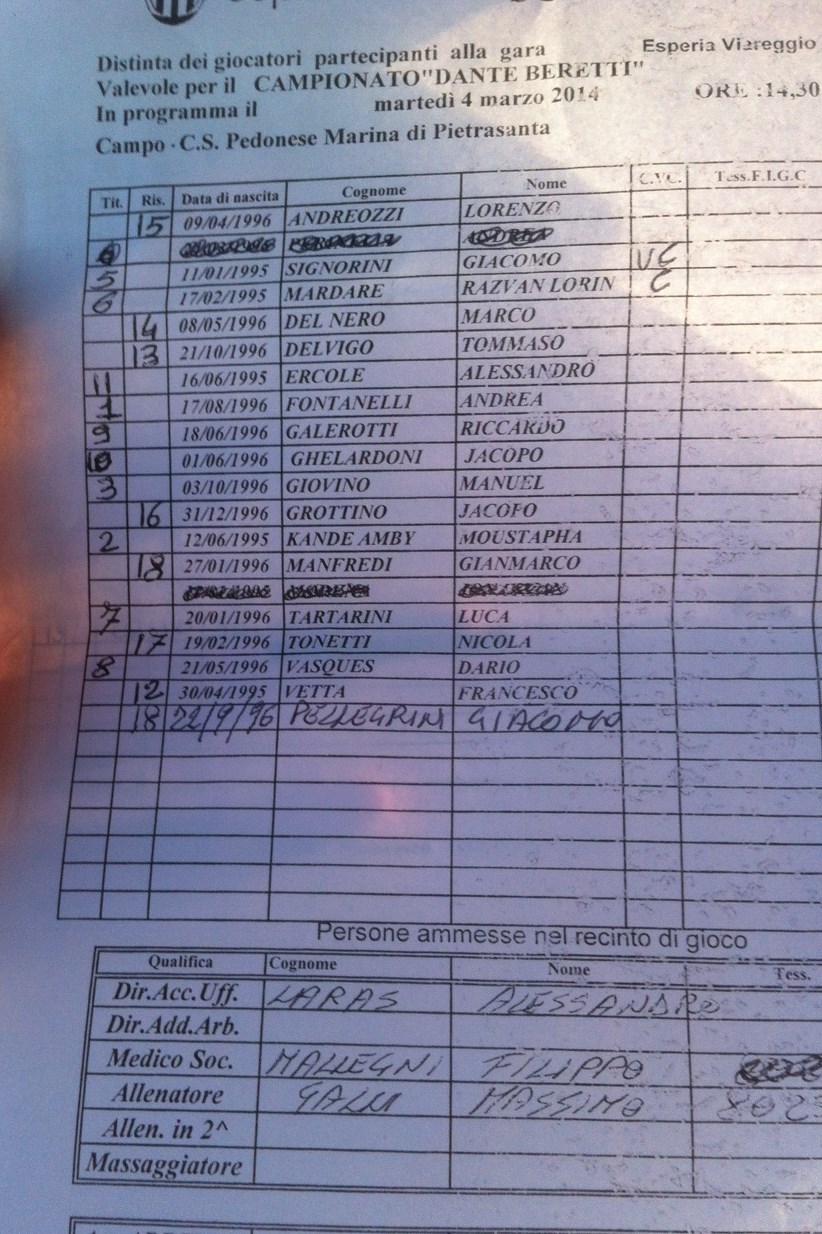 Distinta dei giocatori partecipanti alla gara Esperia Viareggio
Valevole per il CAMPIONATO"DANTE BERETTI"
In programma il martedì 4 marzo 2014 ORE :14,30
Campo - C.S. Pedonese Marina di Pietrasanta
Tit. Ris. Data di nascita Cognome Nome C.VC. Tess.F.I.G.C
15 09/04/1996 ANDREOZZI LORENZO
5 11/01/1995 SIGNORINI GIACOMO VC
6 17/02/1995 MARDARE RAZVAN LORIN C
14 08/05/1996 DEL NERO MARCO
13 21/10/1996 DELVIGO TOMMASO
11 16/06/1995 ERCOLE ALESSANDRO
1 17/08/1996 FONTANELLI ANDREA
9 18/06/1996 GALEROTTI RICCARDO
10 01/06/1996 GHELARDONI JACOPO
3 03/10/1996 GIOVINO MANUEL
16 31/12/1996 GROTTINO JACOPO
2 12/06/1995 KANDE AMBY MOUSTAPHA
18 27/01/1996 MANFREDI GIANMARCO
7 20/01/1996 TARTARINI LUCA
17 19/02/1996 TONETTI NICOLA
8 21/05/1996 VASQUES DARIO
12 30/04/1995 VETTA FRANCESCO
18 22/9/96 PELLEGRINI GIACOMO
Persone ammesse nel recinto di gioco
Qualifica Cognome Nome Tess.
Dir.Acc.Uff. LARAS ALESSANDRO
Dir.Add.Arb.
Medico Soc. MALLEGNI FILIPPO
Allenatore GALLI MASSIMO
Allen. in 2^
Massaggiatore